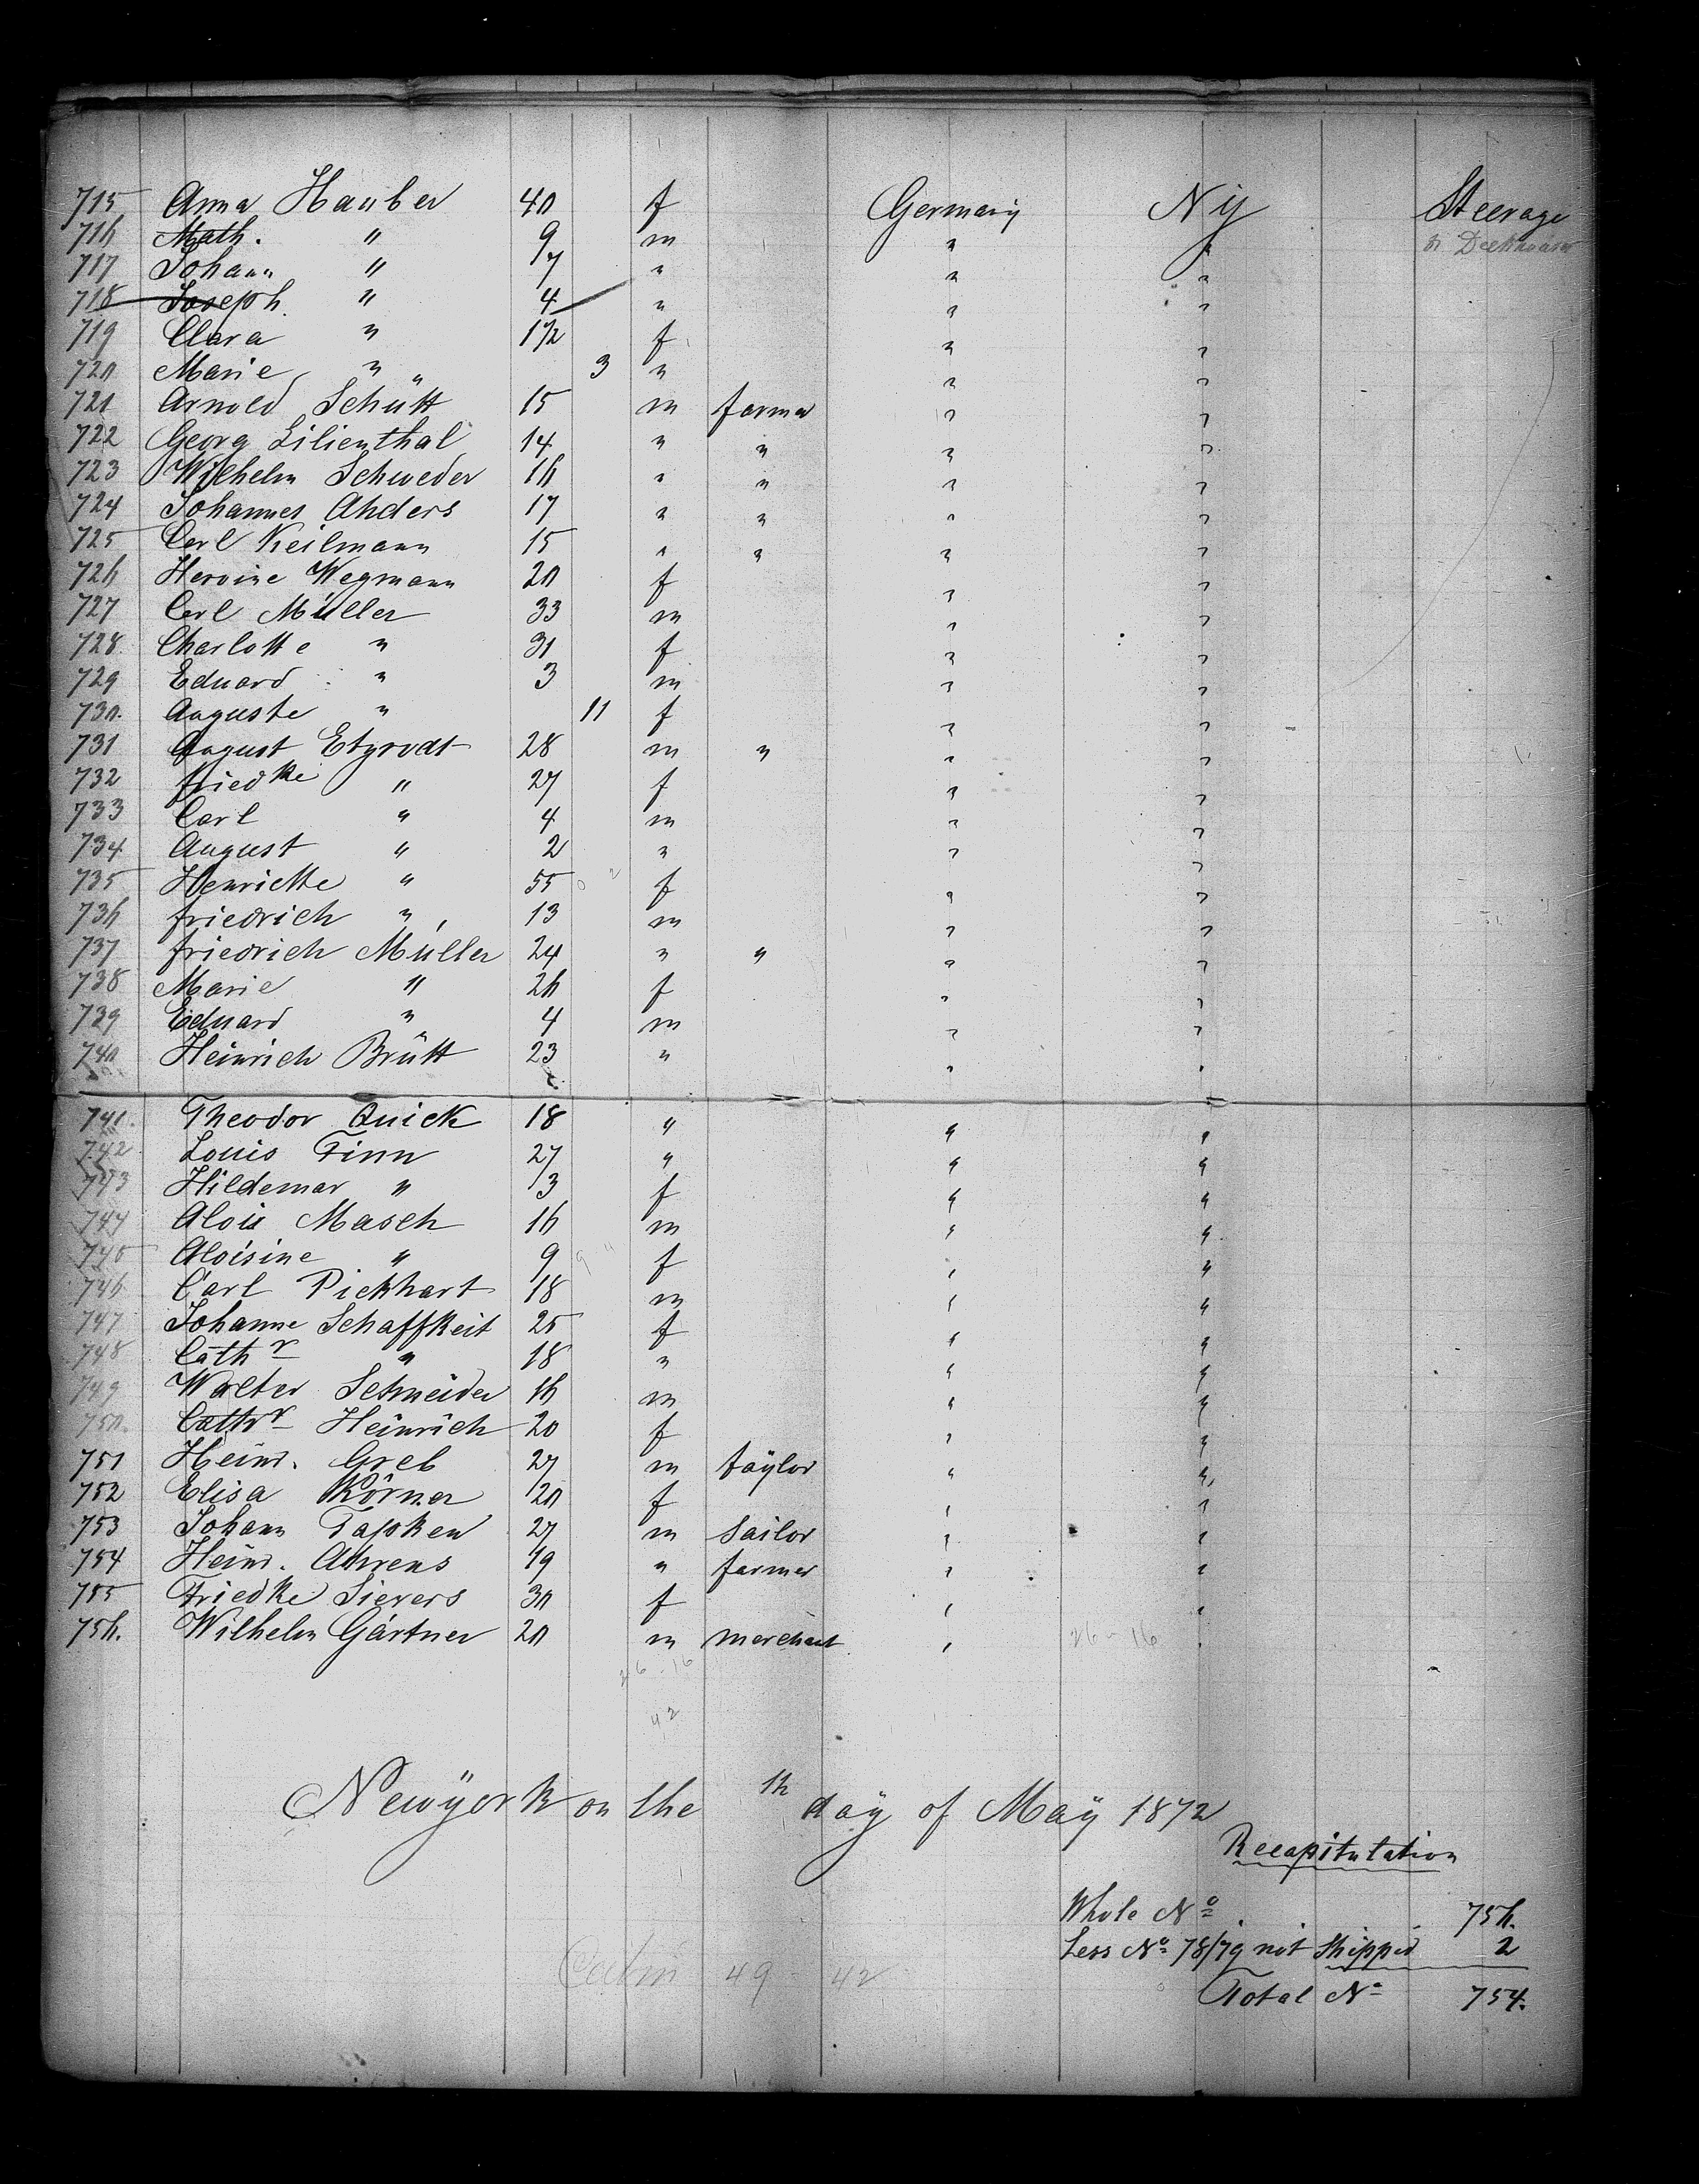 715 Anna Hauber 40 f Germany Ny Steerage
716 Math. " 9 m " " & Deckhouse
717 Johann " 7 " " "
718 Joseph " 4 " " "
719 Clara " 1½ f " "
720 Marie " 3 " " "
721 Arnold Schütt 15 m farmer " "
722 Georg Lilienthal 14 " " " "
723 Wilhelm Schweder 16 " " " "
724 Johannes Ahders 17 " " " "
725 Carl Keilmann 15 " " " "
726 Hervine Wegmann 20 f " "
727 Carl Müller 33 m " "
728 Charlotte " 31 f " "
729 Eduard " 3 m " "
730. Auguste " 11 f " "
731 August Etyrodt 28 m " " "
732 friedke " 27 f " "
733 Carl " 4 m " "
734 August " 2 " " "
735 Henriette " 55 f " "
736 friedrich " 13 m " "
737 friedrich Müller 24 " " " "
738 Marie " 26 f " "
739 Eduard " 4 m " "
740 Heinrich Brütt 23 " " "
741. Theodor Quick 18 " " "
742 Louis Finn 27 " " "
743 Hildemar " 3 f " "
744 Alois Masch 16 m " "
745 Aloisine " 9 f " "
746 Carl Pickhart 18 m " "
747 Johanne Schaffkeit 25 f " "
748 Cathr " 18 " " "
749 Walter Schneider 16 m " "
750. Cathr Heinrich 20 f " "
751 Heinr. Greb 27 m taylor " "
752 Elisa Körner 20 f " "
753 Johann Tapken 27 m Sailor " "
754 Heinr. Ahrens 19 " farmer " "
755 Friedke Sievers 30 f " "
756. Wilhelm Gärtner 20 m merchant " 26-16
26-16
42
Newyork on the th day of May 1872
Recapitulation
Whole No 756.
Less No 78/79 not Shipped 2
49 42
Total No 754.